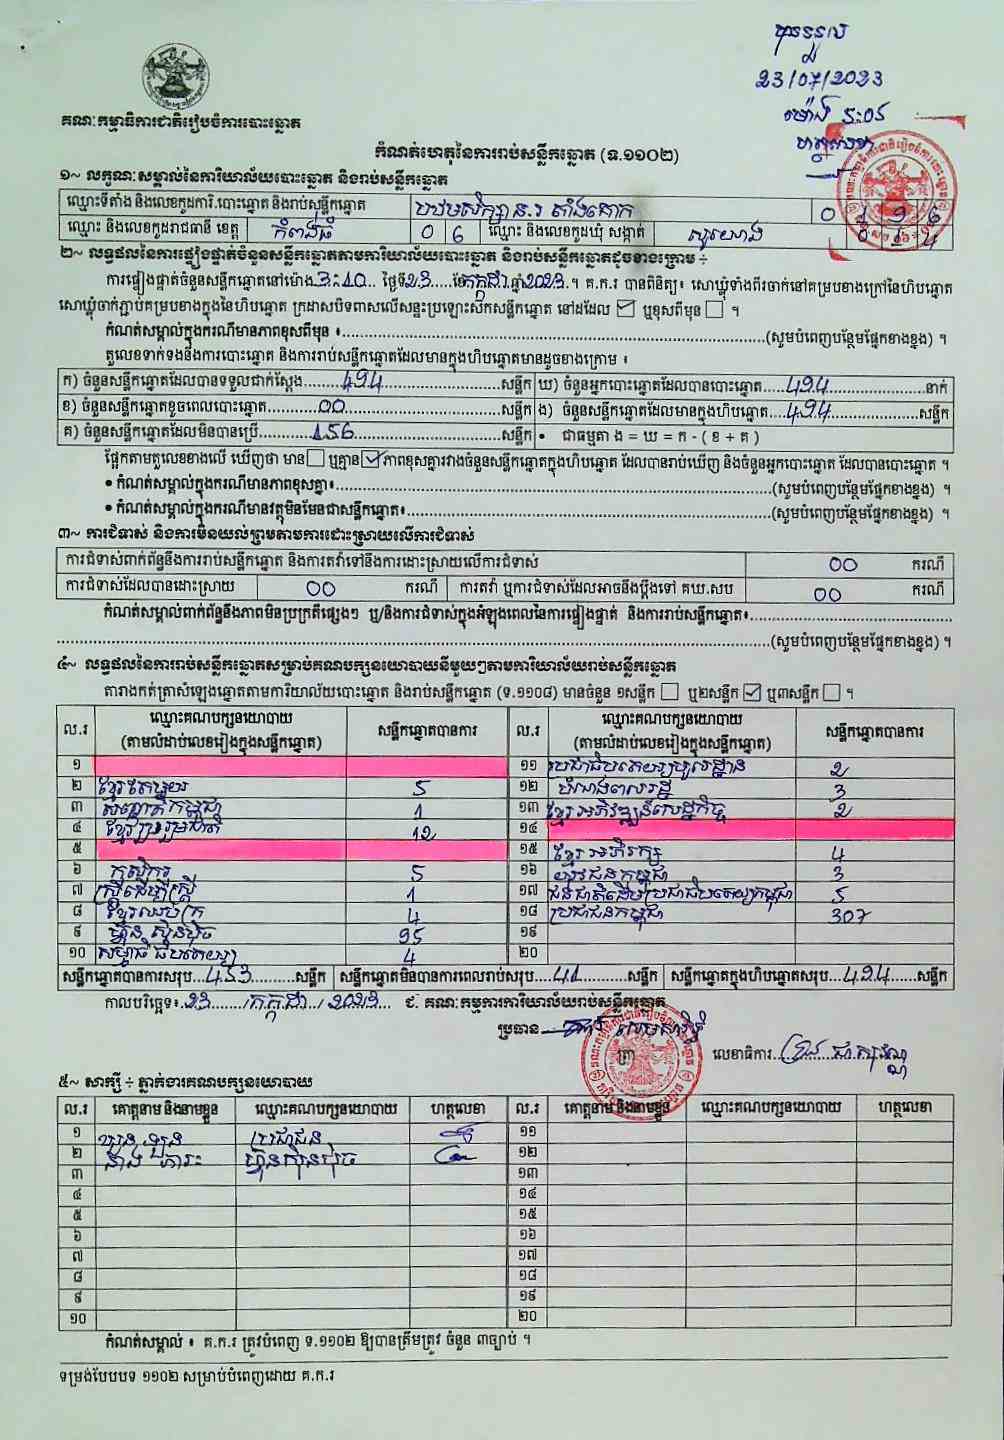 បានទទួល
23/07/2023
ម៉ោង 5:05
ហត្ថលេខា
គណៈកម្មាធិការជាតិរៀបចំការបោះឆ្នោត
កំណត់ហេតុនៃការរាប់សន្លឹកឆ្នោត (ទ.១១០២)
១~ លក្ខណៈសម្គាល់នៃការិយាល័យបោះឆ្នោត និងរាប់សន្លឹកឆ្នោត
ឈ្មោះទីតាំង និងលេខកូដការិ.បោះឆ្នោត និងរាប់សន្លឹកឆ្នោត បឋមសិក្សា ន.រ តាំងគោក 0 1 9 6
ឈ្មោះ និងលេខកូដរាជធានី ខេត្ត កំពង់ធំ 0 6 ឈ្មោះ និងលេខកូដឃុំ សង្កាត់ សូយោង 0 1 4
២~ លទ្ធផលនៃការផ្ទៀងផ្ទាត់ចំនួនសន្លឹកឆ្នោតតាមការិយាល័យបោះឆ្នោត និងរាប់សន្លឹកឆ្នោតដូចខាងក្រោម ÷
ការផ្ទៀងផ្ទាត់ចំនួនសន្លឹកឆ្នោតនៅម៉ោង 3:10 ថ្ងៃទី 23 ខែ កក្កដា ឆ្នាំ 2023 ។ គ.ក.រ បានពិនិត្យ៖ សោឃ្លុំទាំងពីរចាក់នៅគម្របខាងក្រៅនៃហិបឆ្នោត
សោឃ្លុំចាក់ភ្ជាប់គម្របខាងក្នុងនៃហិបឆ្នោត ក្រដាសបិទពាសលើសន្ទះប្រឡោះស៊កសន្លឹកឆ្នោត នៅដដែល ☑ ឬខុសពីមុន ☐ ។
កំណត់សម្គាល់ក្នុងករណីមានភាពខុសពីមុន ៖ (សូមបំពេញបន្ថែមផ្នែកខាងខ្នង) ។
តួលេខទាក់ទងនឹងការបោះឆ្នោត និងការរាប់សន្លឹកឆ្នោតដែលមានក្នុងហិបឆ្នោតមានដូចខាងក្រោម ៖
ក) ចំនួនសន្លឹកឆ្នោតដែលបានទទួលជាក់ស្តែង 494 សន្លឹក ឃ) ចំនួនអ្នកបោះឆ្នោតដែលបានបោះឆ្នោត 494 នាក់
ខ) ចំនួនសន្លឹកឆ្នោតខូចពេលបោះឆ្នោត 00 សន្លឹក ង) ចំនួនសន្លឹកឆ្នោតដែលមានក្នុងហិបឆ្នោត 494 សន្លឹក
គ) ចំនួនសន្លឹកឆ្នោតដែលមិនបានប្រើ 156 សន្លឹក • ជាធម្មតា ង = ឃ = ក - ( ខ + គ )
ផ្អែកតាមតួលេខខាងលើ ឃើញថា មាន ☐ ឬគ្មាន ☑ ភាពខុសគ្នារវាងចំនួនសន្លឹកឆ្នោតក្នុងហិបឆ្នោត ដែលបានរាប់ឃើញ និងចំនួនអ្នកបោះឆ្នោត ដែលបានបោះឆ្នោត ។
• កំណត់សម្គាល់ក្នុងករណីមានភាពខុសគ្នា៖ (សូមបំពេញបន្ថែមផ្នែកខាងខ្នង) ។
• កំណត់សម្គាល់ក្នុងករណីមានវត្ថុមិនមែនជាសន្លឹកឆ្នោត៖ (សូមបំពេញបន្ថែមផ្នែកខាងខ្នង) ។
៣~ ការជំទាស់ និងការមិនយល់ព្រមតាមការដោះស្រាយលើការជំទាស់
ការជំទាស់ពាក់ព័ន្ធនឹងការរាប់សន្លឹកឆ្នោត និងការតវ៉ាទៅនឹងការដោះស្រាយលើការជំទាស់ 00 ករណី
ការជំទាស់ដែលបានដោះស្រាយ 00 ករណី ការតវ៉ា ឬការជំទាស់ដែលអាចនឹងប្តឹងទៅ គឃ.សប 00 ករណី
កំណត់សម្គាល់ពាក់ព័ន្ធនឹងភាពមិនប្រក្រតីផ្សេងៗ ឬ/និងការជំទាស់ក្នុងអំឡុងពេលនៃការផ្ទៀងផ្ទាត់ និងការរាប់សន្លឹកឆ្នោត៖
(សូមបំពេញបន្ថែមផ្នែកខាងខ្នង) ។
៤~ លទ្ធផលនៃការរាប់សន្លឹកឆ្នោតសម្រាប់គណបក្សនយោបាយនីមួយៗតាមការិយាល័យរាប់សន្លឹកឆ្នោត
តារាងកត់ត្រាសំឡេងឆ្នោតតាមការិយាល័យបោះឆ្នោត និងរាប់សន្លឹកឆ្នោត (ទ.១១០៨) មានចំនួន ១សន្លឹក ☐ ឬ២សន្លឹក ☑ ឬ៣សន្លឹក ☐ ។
ល.រ ឈ្មោះគណបក្សនយោបាយ (តាមលំដាប់លេខរៀងក្នុងសន្លឹកឆ្នោត) សន្លឹកឆ្នោតបានការ ល.រ ឈ្មោះគណបក្សនយោបាយ (តាមលំដាប់លេខរៀងក្នុងសន្លឹកឆ្នោត) សន្លឹកឆ្នោតបានការ
១ ១១ ប្រជាធិបតេយ្យមូលដ្ឋាន 2
២ ខ្មែរតែមួយ 5 ១២ បំណងពលរដ្ឋ 3
៣ សញ្ជាតិកម្ពុជា 1 ១៣ ខ្មែរអភិវឌ្ឍន៍សេដ្ឋកិច្ច 2
៤ ខ្មែររួបរួមជាតិ 12 ១៤
៥ ១៥ ខ្មែរអភិរក្ស 4
៦ កសិករ 5 ១៦ យុវជនកម្ពុជា 3
៧ ស្ត្រីដើម្បីស្ត្រី 1 ១៧ ជនជាតិដើមប្រជាធិបតេយ្យកម្ពុជា 5
៨ ខ្មែរឈប់ក្រ 4 ១៨ ប្រជាជនកម្ពុជា 307
៩ ហ៊្វុន ស៊ិនប៉ិច 95 ១៩
១០ សម្ពាធិ៍ធិបតេយ្យ 4 ២០
សន្លឹកឆ្នោតបានការសរុប 453 សន្លឹក សន្លឹកឆ្នោតមិនបានការពេលរាប់សរុប 41 សន្លឹក សន្លឹកឆ្នោតក្នុងហិបឆ្នោតសរុប 494 សន្លឹក
កាលបរិច្ឆេទ៖ 23 / កក្កដា / 2023 ជ. គណៈកម្មការការិយាល័យរាប់សន្លឹកឆ្នោត
ប្រធាន ត្រា លេខាធិការ
៥~ សាក្សី ÷ ភ្នាក់ងារគណបក្សនយោបាយ
ល.រ គោត្តនាម និងនាមខ្លួន ឈ្មោះគណបក្សនយោបាយ ហត្ថលេខា ល.រ គោត្តនាម និងនាមខ្លួន ឈ្មោះគណបក្សនយោបាយ ហត្ថលេខា
១ ប្រជាជន ១១
២ ហ៊្វុនស៊ិនប៉ិច ១២
៣ ១៣
៤ ១៤
៥ ១៥
៦ ១៦
៧ ១៧
៨ ១៨
៩ ១៩
១០ ២០
កំណត់សម្គាល់ ៖ គ.ក.រ ត្រូវបំពេញ ទ.១១០២ ឱ្យបានត្រឹមត្រូវ ចំនួន ៣ច្បាប់ ។
ទម្រង់បែបបទ ១១០២ សម្រាប់បំពេញដោយ គ.ក.រ